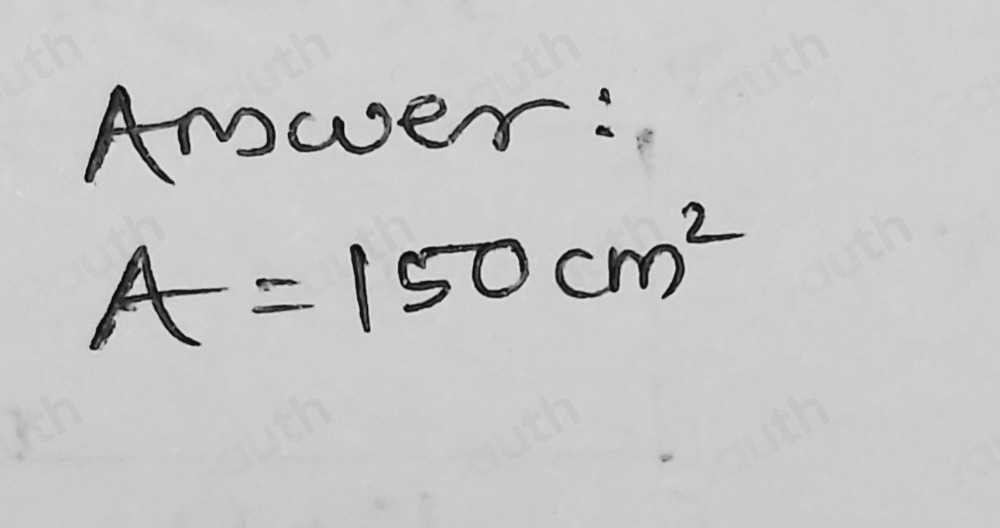 Answer:
A = 150 cm²